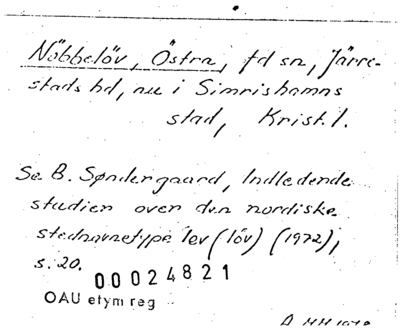 Nöbbelöv, Östra, fd sn, Järre-
stads hd, nu i Simrishamns
stad, Krist.l.
Se B. Søndergaard, Indledende
studier over den nordiske
stednavnetype lev (löv) (1972),
s. 20.
00024821
OAU etym reg